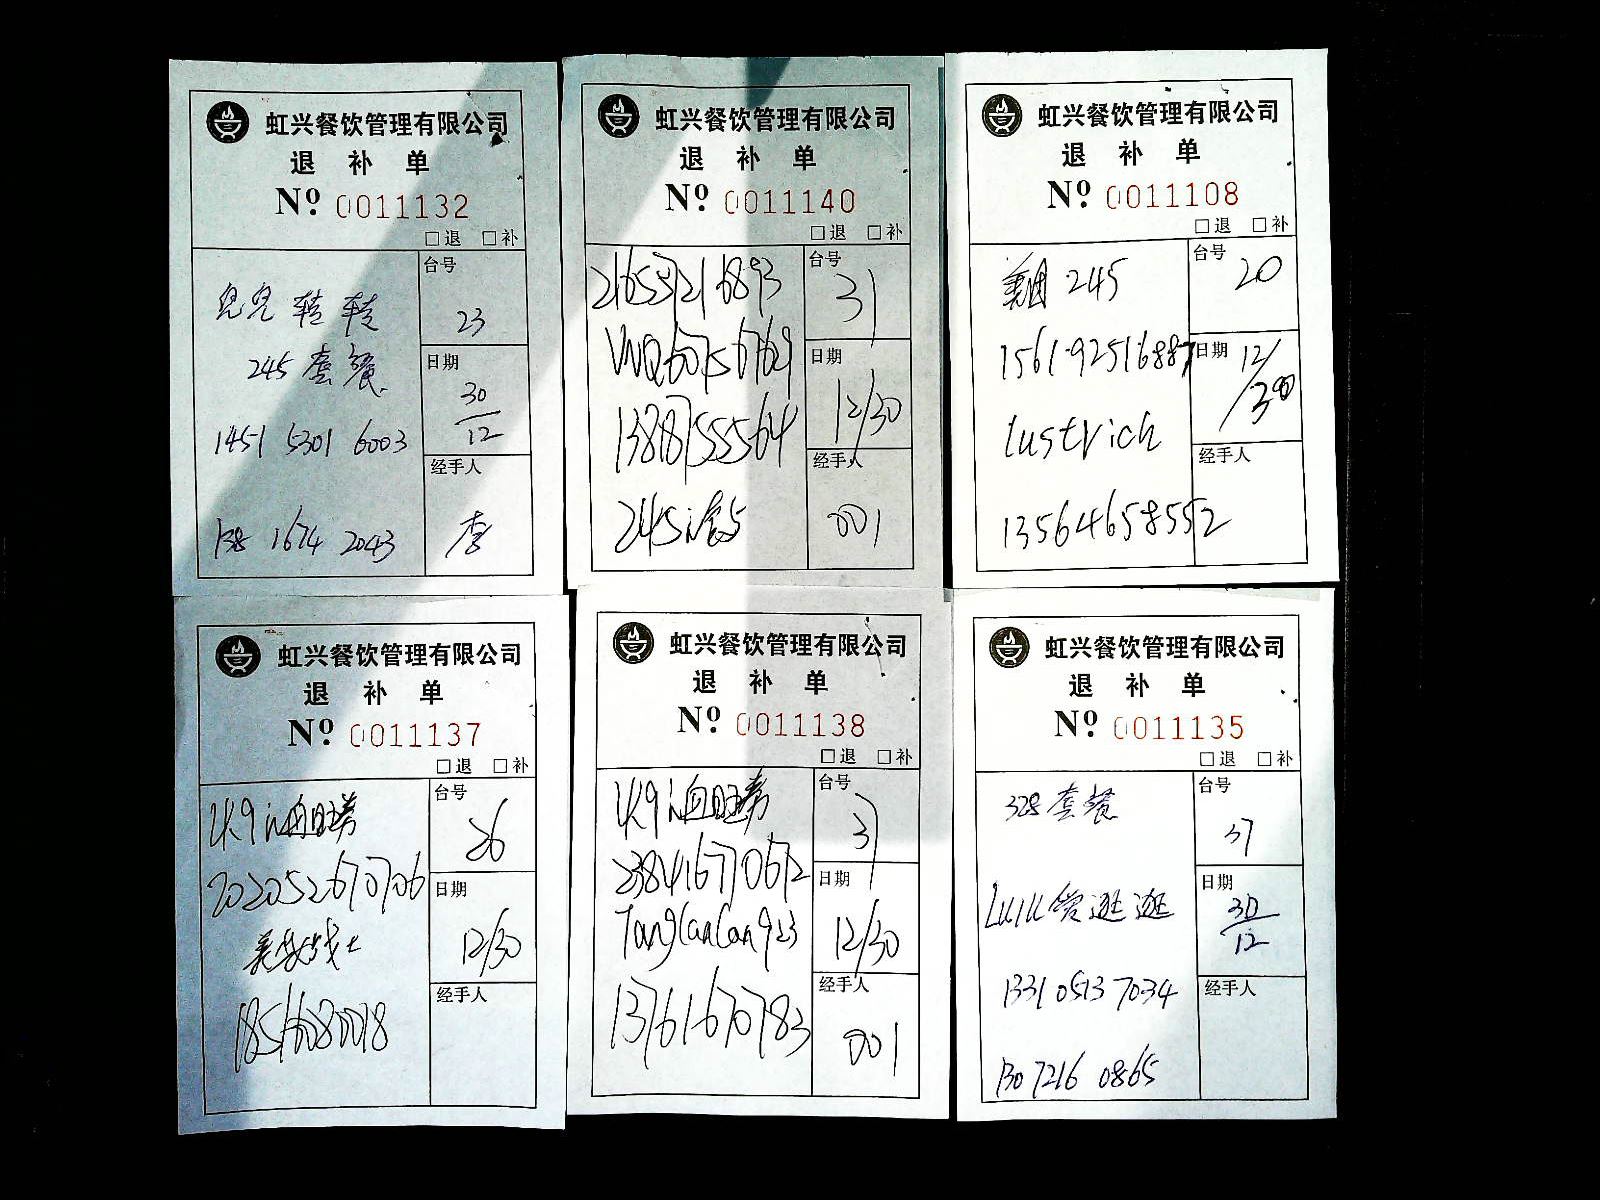 虹兴餐饮管理有限公司
退 补 单
Nº 0011132
□退 □补
台号
23
兜兜 转转
245 套餐
1451 5301 6003
138 1674 2043
日期
30/12
经手人
李
虹兴餐饮管理有限公司
退 补 单
Nº 0011140
□退 □补
台号
31
13887555564
日期
12/30
经手人
001
虹兴餐饮管理有限公司
退 补 单
Nº 0011108
□退 □补
台号
20
美团 245
1561 92516887
lustrich
13564658552
日期
12/30
经手人
虹兴餐饮管理有限公司
退 补 单
Nº 0011137
□退 □补
台号
26
202052670706
18516080078
日期
12/30
经手人
虹兴餐饮管理有限公司
退 补 单
Nº 0011138
□退 □补
台号
31
238416770672
TangCanCan923
13761670783
日期
12/30
经手人
001
虹兴餐饮管理有限公司
退 补 单
Nº 0011135
□退 □补
台号
37
328 套餐
LuLu爱逛逛
1331 0513 7034
130 7216 0865
日期
30/12
经手人